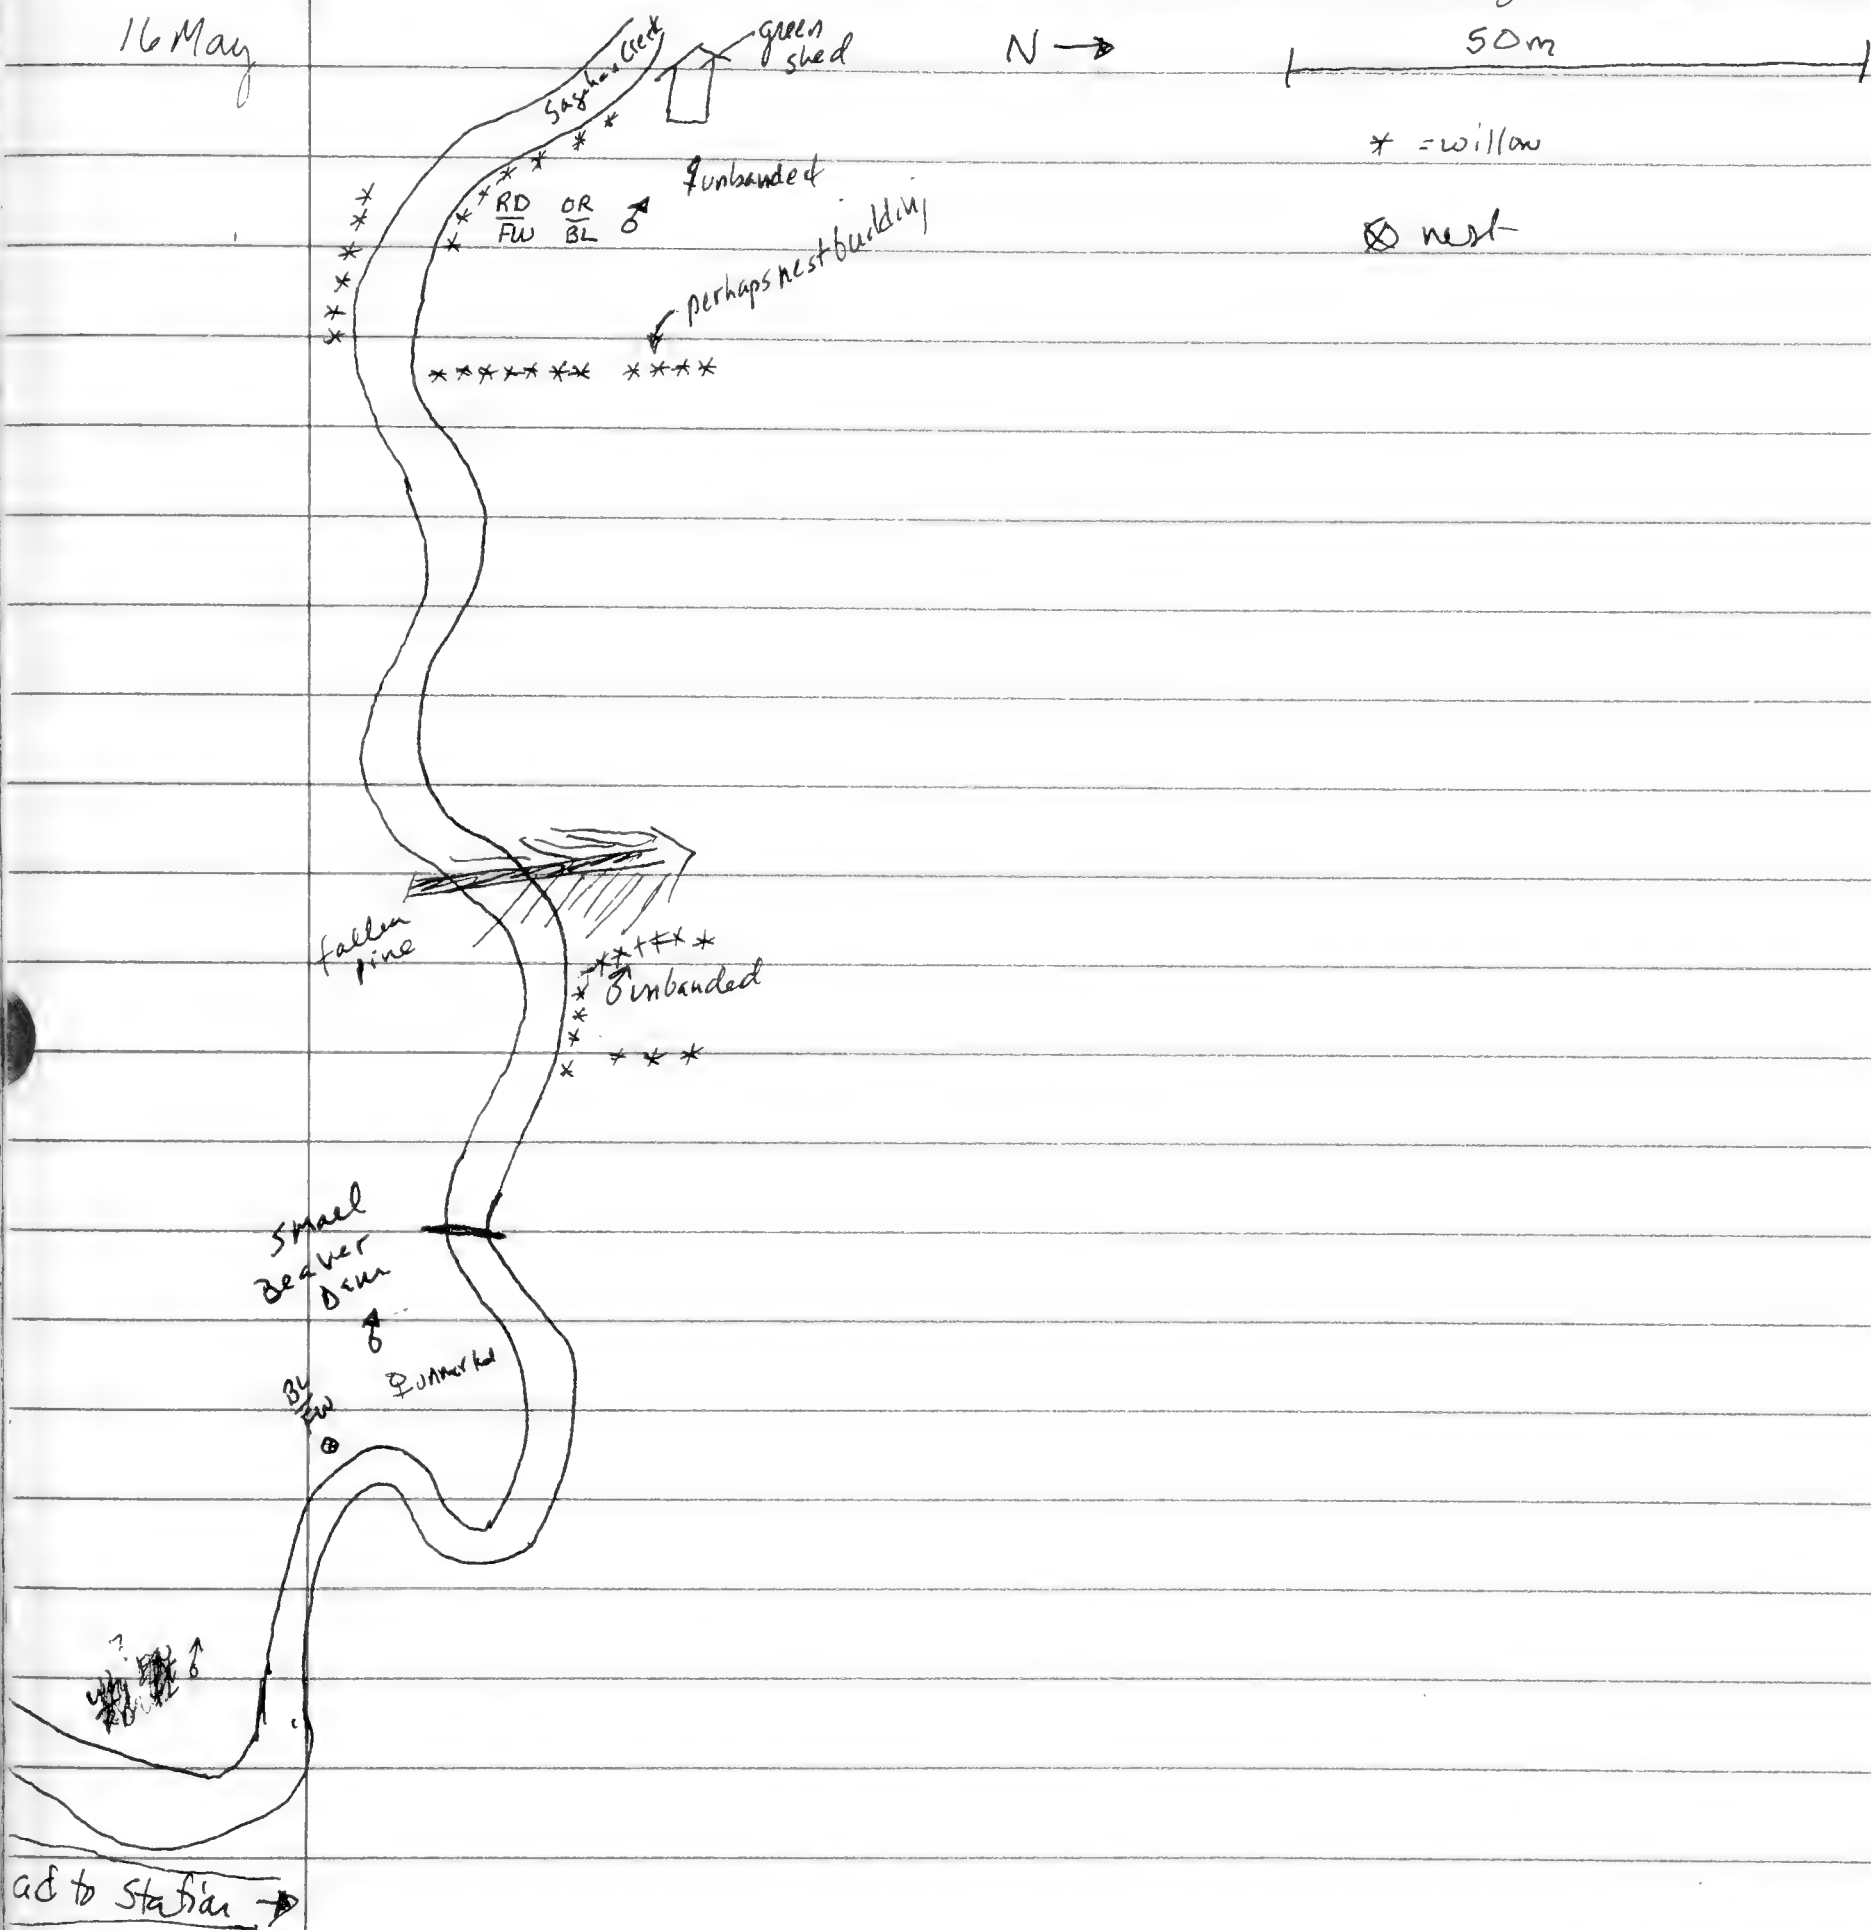 16 May
green
shed
N →
50m
Sagehen Creek
* = willow
⊗ nest
♀ unbanded
RD OR ♂
FW BL
perhaps nest building
fallen
pine
♂ unbanded
Small
Beaver
Dam
♂
♀ unmarked
BL
FW
?
♂
ad to Station →